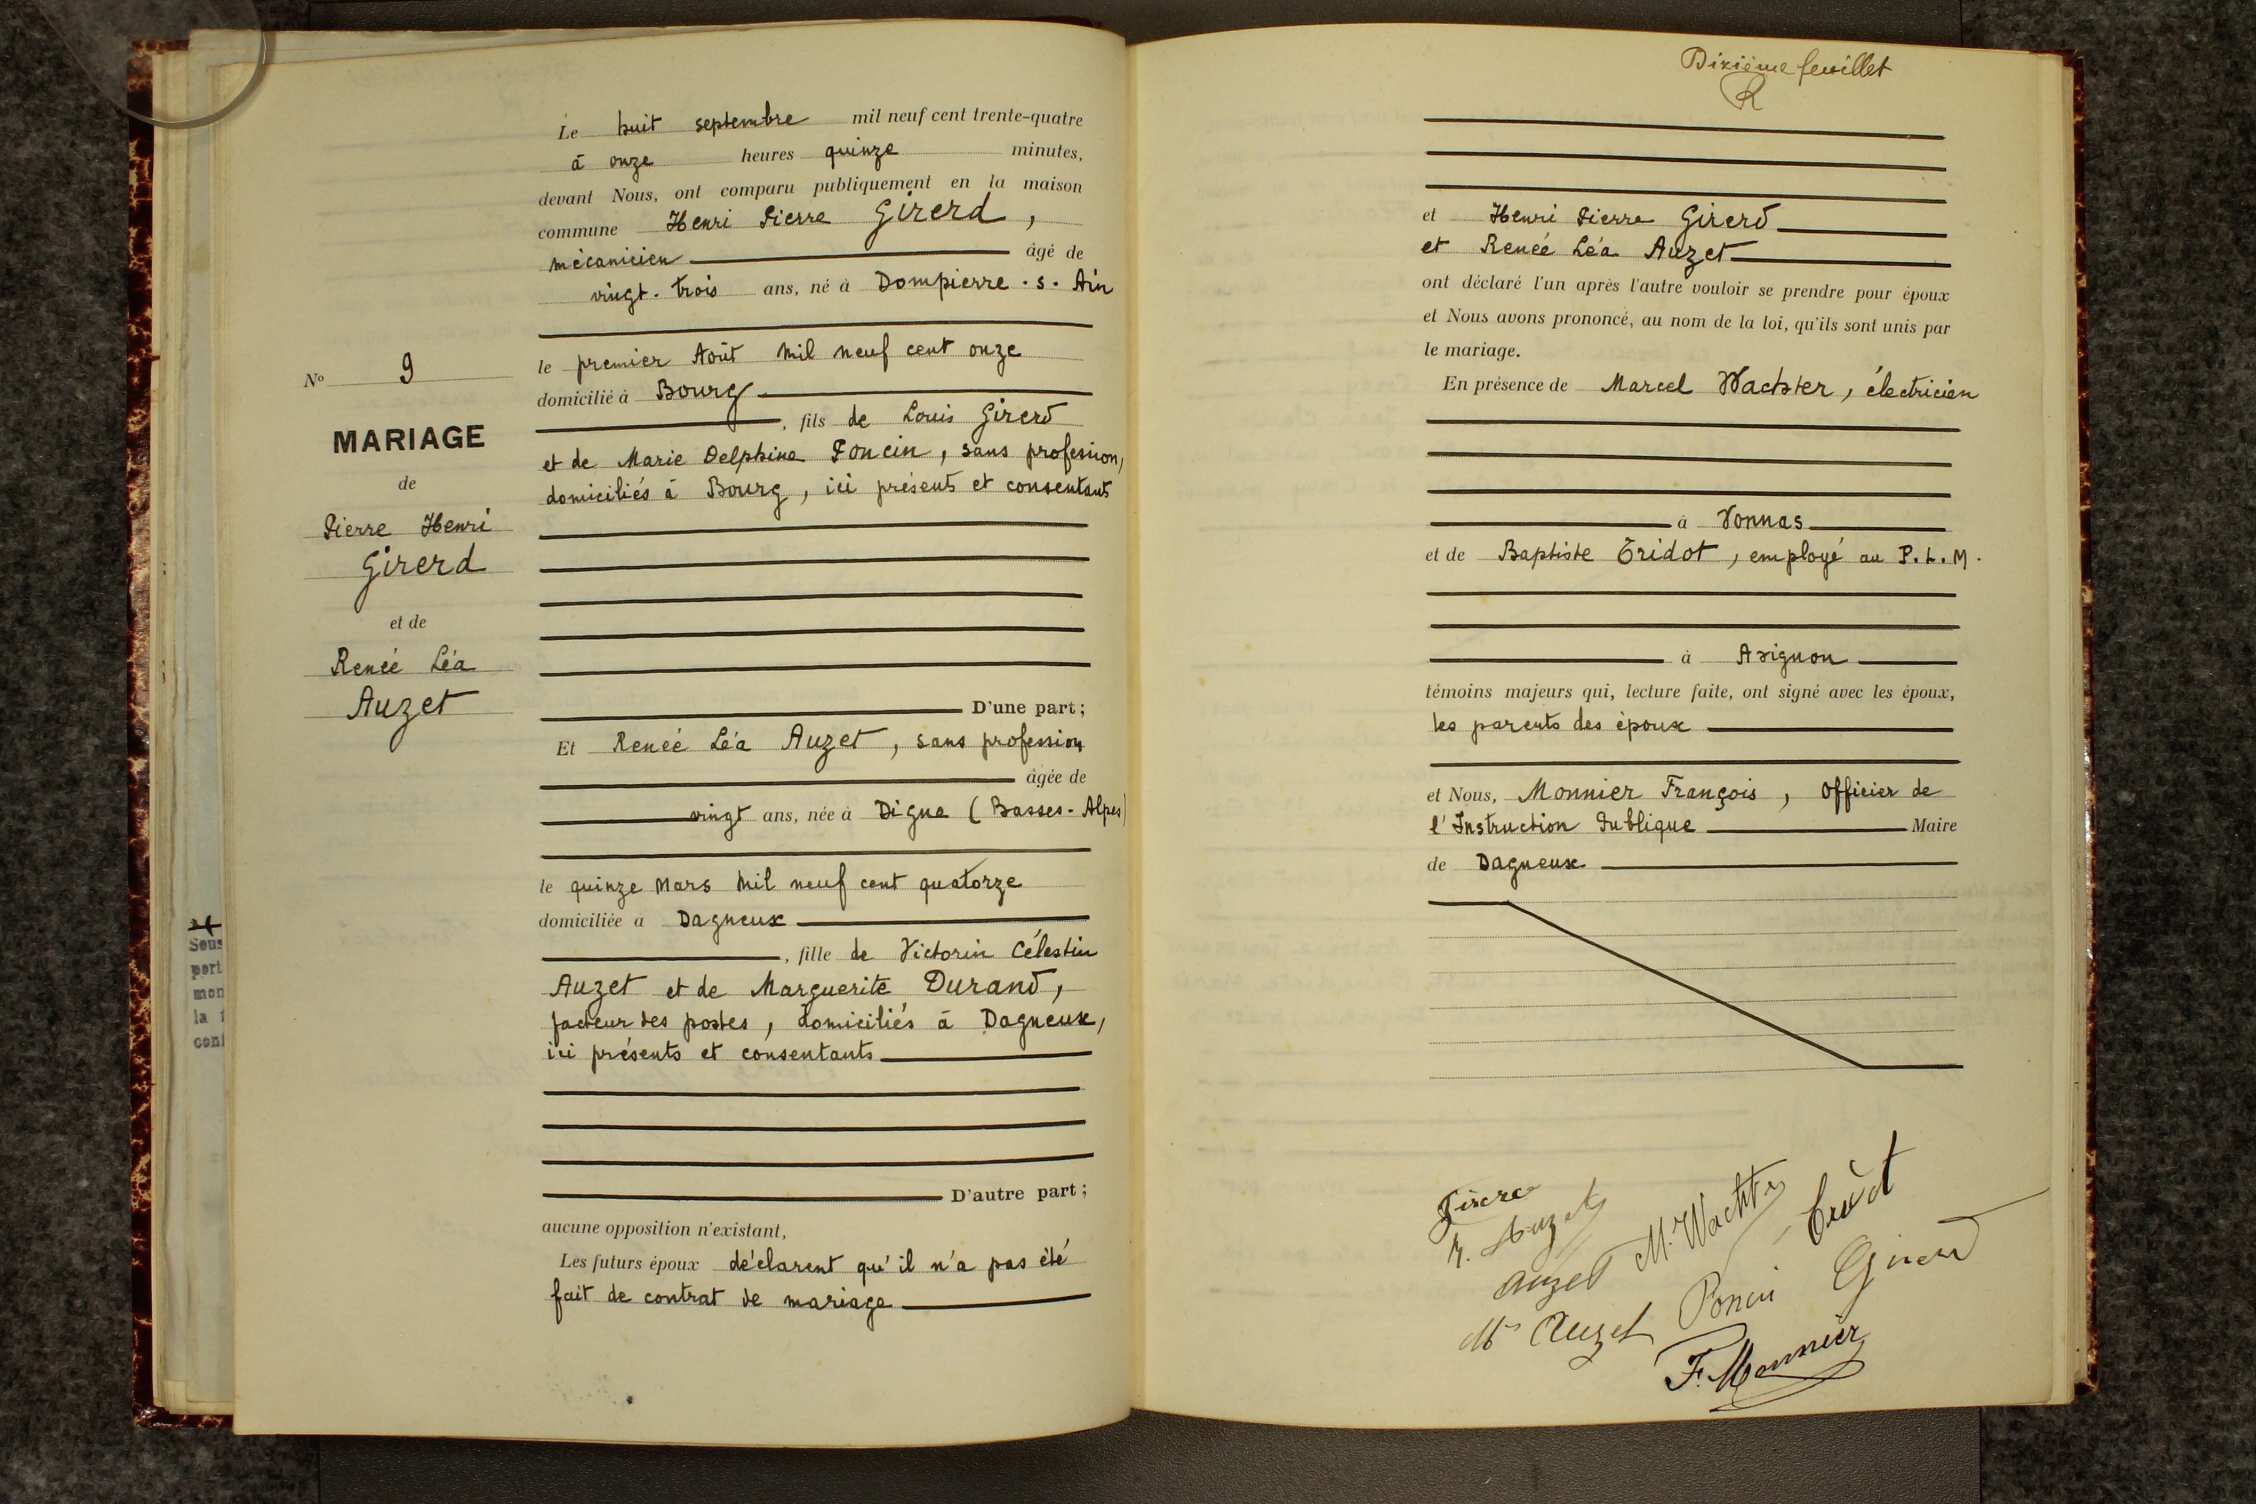 Le huit septembre mil neuf cent trente-quatre
à onze heures quinze minutes,
devant Nous, ont comparu publiquement en la maison
commune Henri Pierre Girerd,
mécanicien âgé de
vingt-trois ans, né à Dompierre . s . Ain
le premier Août mil neuf cent onze
domicilié à Bourg
, fils de Louis Girerd
et de Marie Delphine Poncin, sans profession,
domiciliés à Bourg, ici présents et consentants
D'une part;
Et Renée Léa Auzet, sans profession
âgée de
vingt ans, née à Digne (Basses-Alpes)
le quinze Mars mil neuf cent quatorze
domiciliée à Dagneux
, fille de Victorin Célestin
Auzet et de Marguerite Durand,
facteur des postes, domiciliés à Dagneux,
ici présents et consentants
D'autre part;
aucune opposition n'existant,
Les futurs époux déclarent qu'il n'a pas été
fait de contrat de mariage
No 9
MARIAGE
de
Pierre Henri
Girerd
et de
Renée Léa
Auzet
Sous
port
mon
la
Dixième feuillet
R
et Henri Pierre Girerd
et Renée Léa Auzet
ont déclaré l'un après l'autre vouloir se prendre pour époux
et Nous avons prononcé, au nom de la loi, qu'ils sont unis par
le mariage.
En présence de Marcel Wachter, électricien
à Vonnas
et de Baptiste Tridot, employé au P.L.M.
à Avignon
témoins majeurs qui, lecture faite, ont signé avec les époux,
les parents des époux
et Nous, Monnier François, Officier de
l'Instruction Publique Maire
de Dagneux
Girerd
R. Auzet
M. Wachter
Auzet
Mme Auzet
Poncin
Girerd
F. Monnier